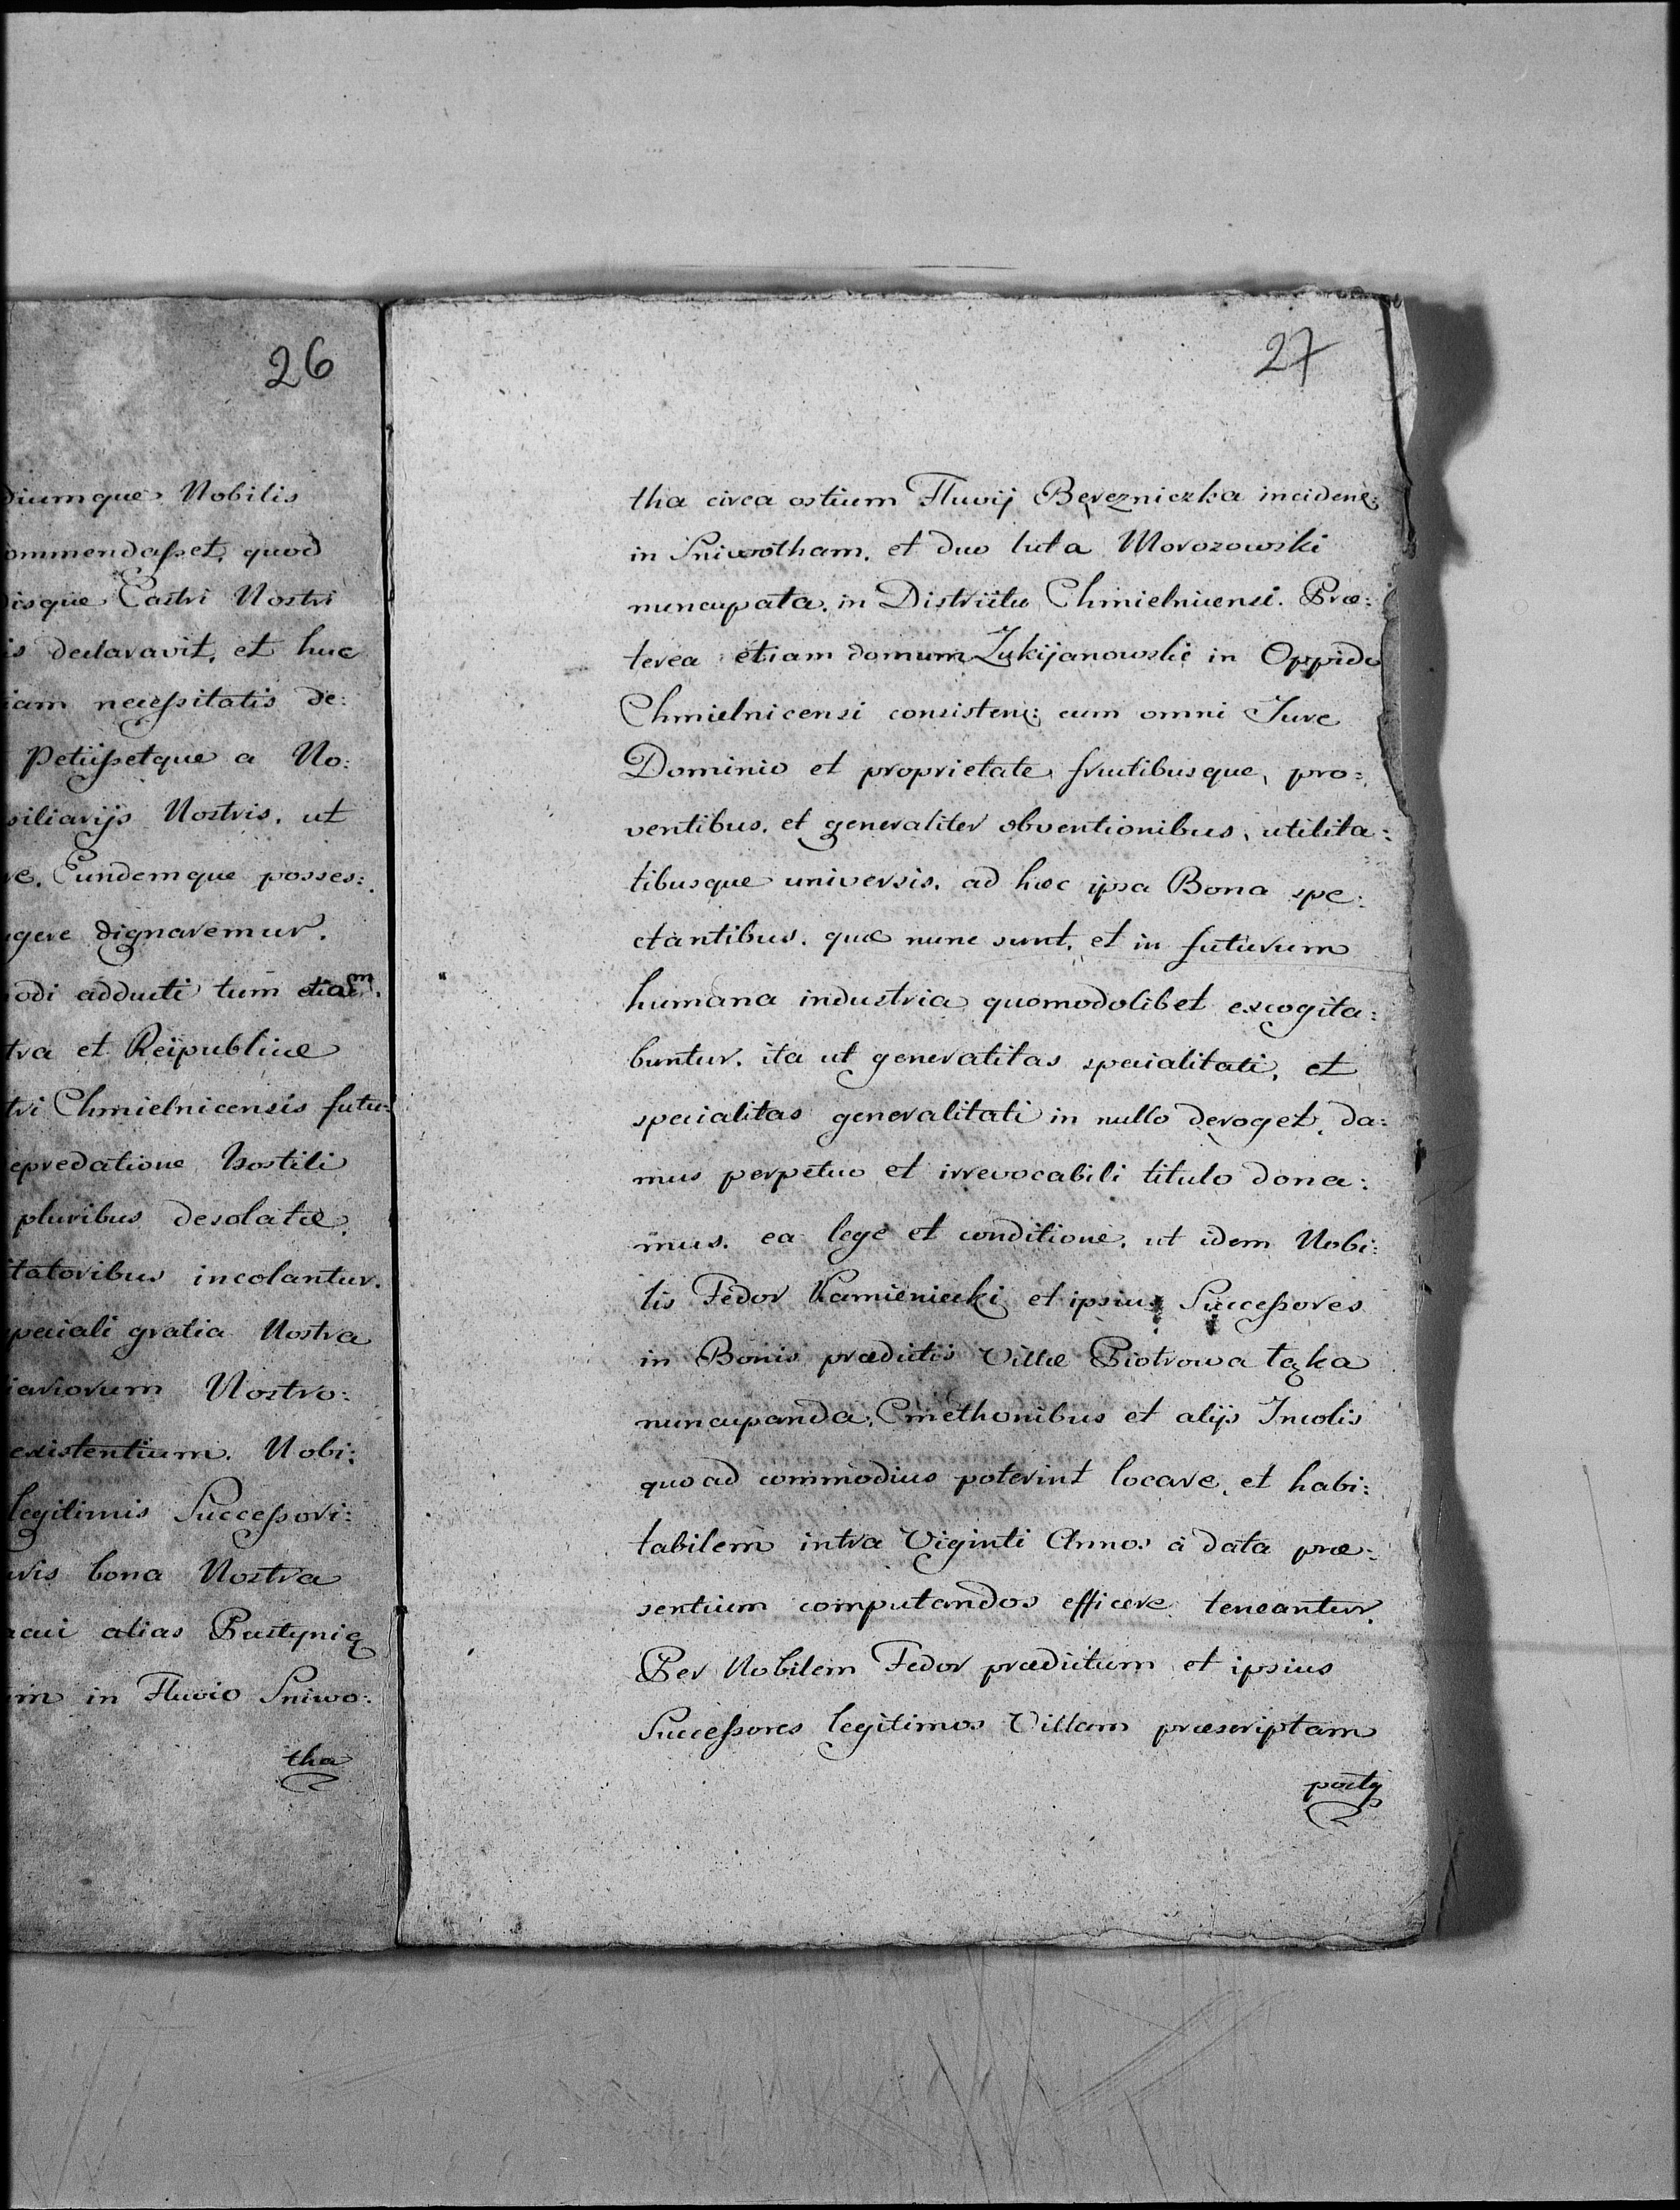 26
diumque Nobilis
ommendaßet, quod
disque Castri Nostri
is declaravit, et huc
iam neceßitatis de:
Petiißetque a No:
siliarijs Nostris, ut
re. Eundemque posses:
gere dignaremur.
odi adducti tum etiam
tra et Reipublicæ
tri Chmielnicensis futu:
epredatione hostili
pluribus desolatæ,
itatoribus incolantur.
peciali gratia Nostra
iariorum Nostro:
existentium. Nobi:
legitimis Succeßori:
uris bona Nostra
acui alias Pustynią
im in Fluvio Sniwo:
tha
27
tha circa ostium Fluvij Berezniczka incidenę:
in Sniwotham, et duo luta Morozowski
nuncupata, in Districtu Chmielnicensi. Præ:
terea etiam domum Łukijanowskie in Oppido
Chmielnicensi consistenę: cum omni Jure
Dominio et proprietate, fructibusque, pro:
ventibus, et generaliter obventionibus, utilita:
tibusque universis, ad hæc ipsa Bona spe:
ctantibus, quæ nunc sunt, et in futurum
humana industria quomodolibet excogita:
buntur, ita ut generalitas specialitati, et
specialitas generalitati in nullo deroget, da:
mus perpetuo et irrevocabili titulo dona:
mus. ea lege et conditione, ut idem Nobi:
lis Fedor Kamieniecki et ipsius Succeßores
in Bonis prædictis Villæ Piotrowa łąka
nuncupanda, Cmethonibus et alijs Incolis
quoad commodius poterint locare, et habi:
tabilem intra Viginti Annos à data præ:
sentium computandos efficere teneantur.
Per Nobilem Fedor prædictum et ipsius
Succeßores legitimos Villam præscriptam